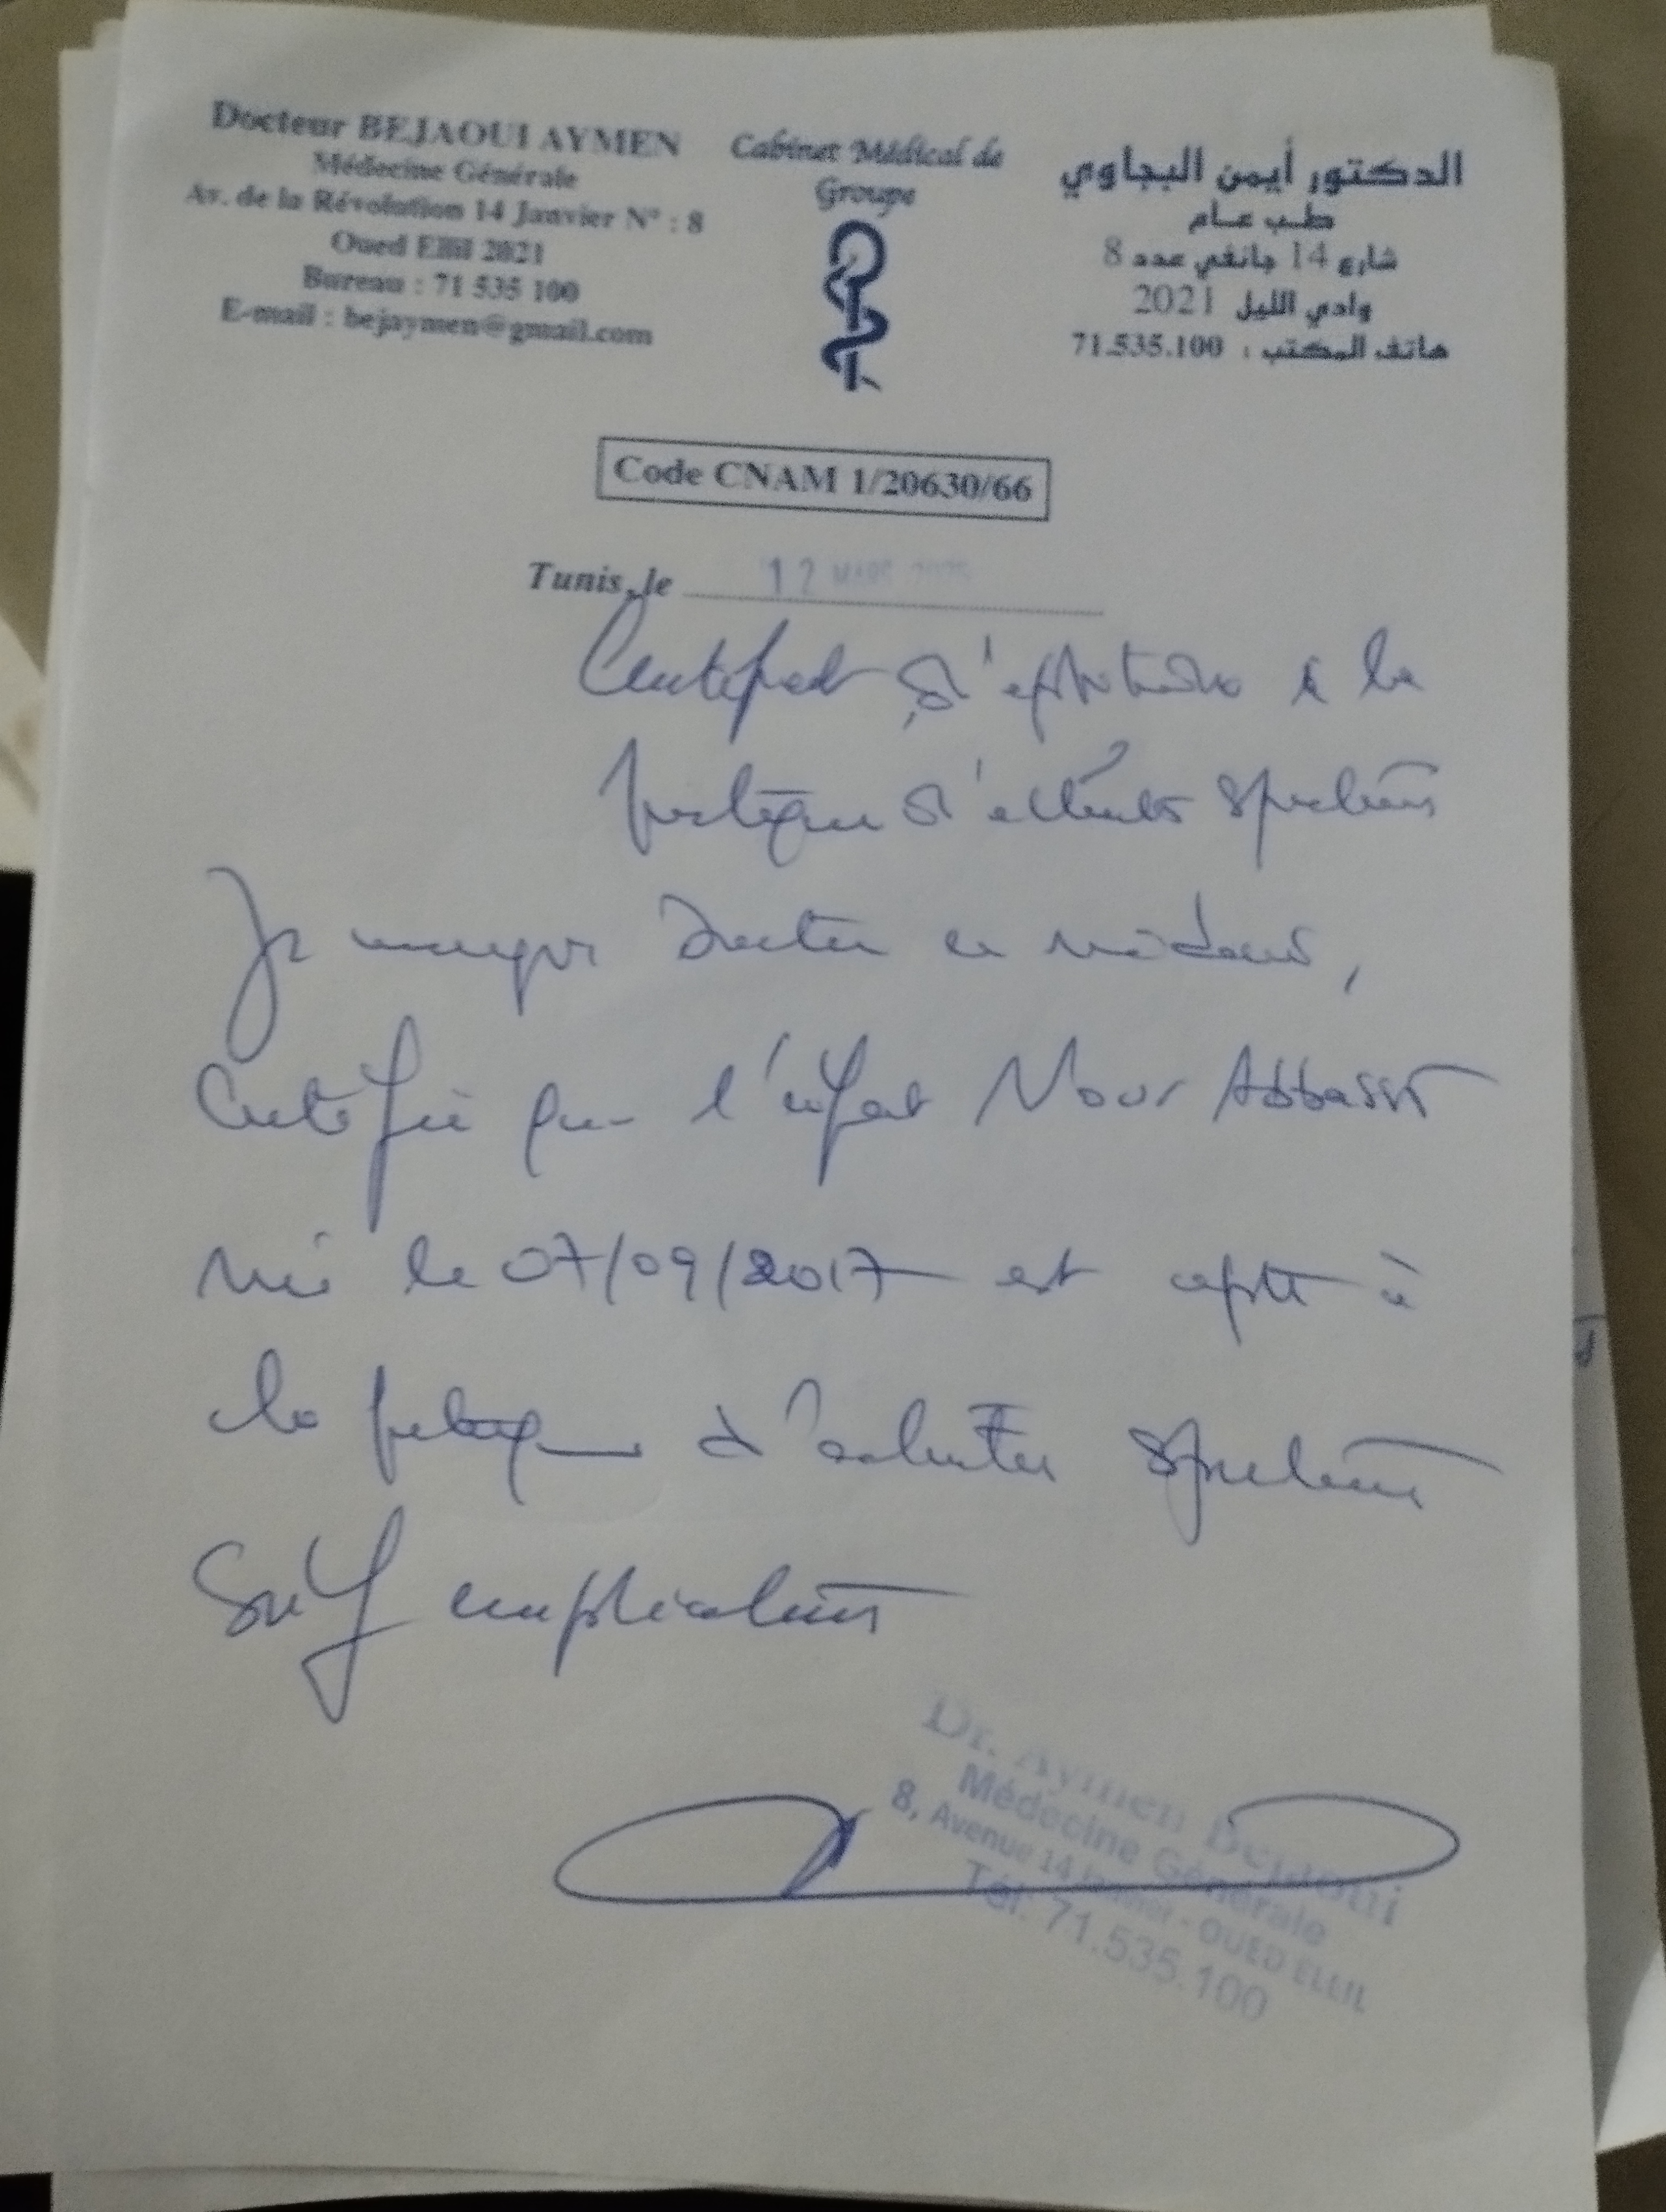 Docteur BEJAOUI AYMEN
Médecine Générale
Av. de la Révolution 14 Janvier N° : 8
Oued Ellil 2021
Bureau : 71 535 100
E-mail : bejaymen@gmail.com
Cabinet Médical de
Groupe
الدكتور أيمن البجاوي
طب عام
شارع 14 جانفي عدد 8
وادي الليل 2021
هاتف المكتب : 71.535.100
Code CNAM 1/20630/66
Tunis, le 12 MARS
Certificat d'aptitude à la
pratique d'activités sportives
Je soussigné Docteur en médecine,
Certifie que l'enfant Nour Abbassi
né le 07/09/2017 est apte à
la pratique d'activités sportives
Sauf complications
Dr. Aymen Bejaoui
Médecine Générale
8, Avenue 14 Janvier - OUED ELLIL
Tél: 71.535.100